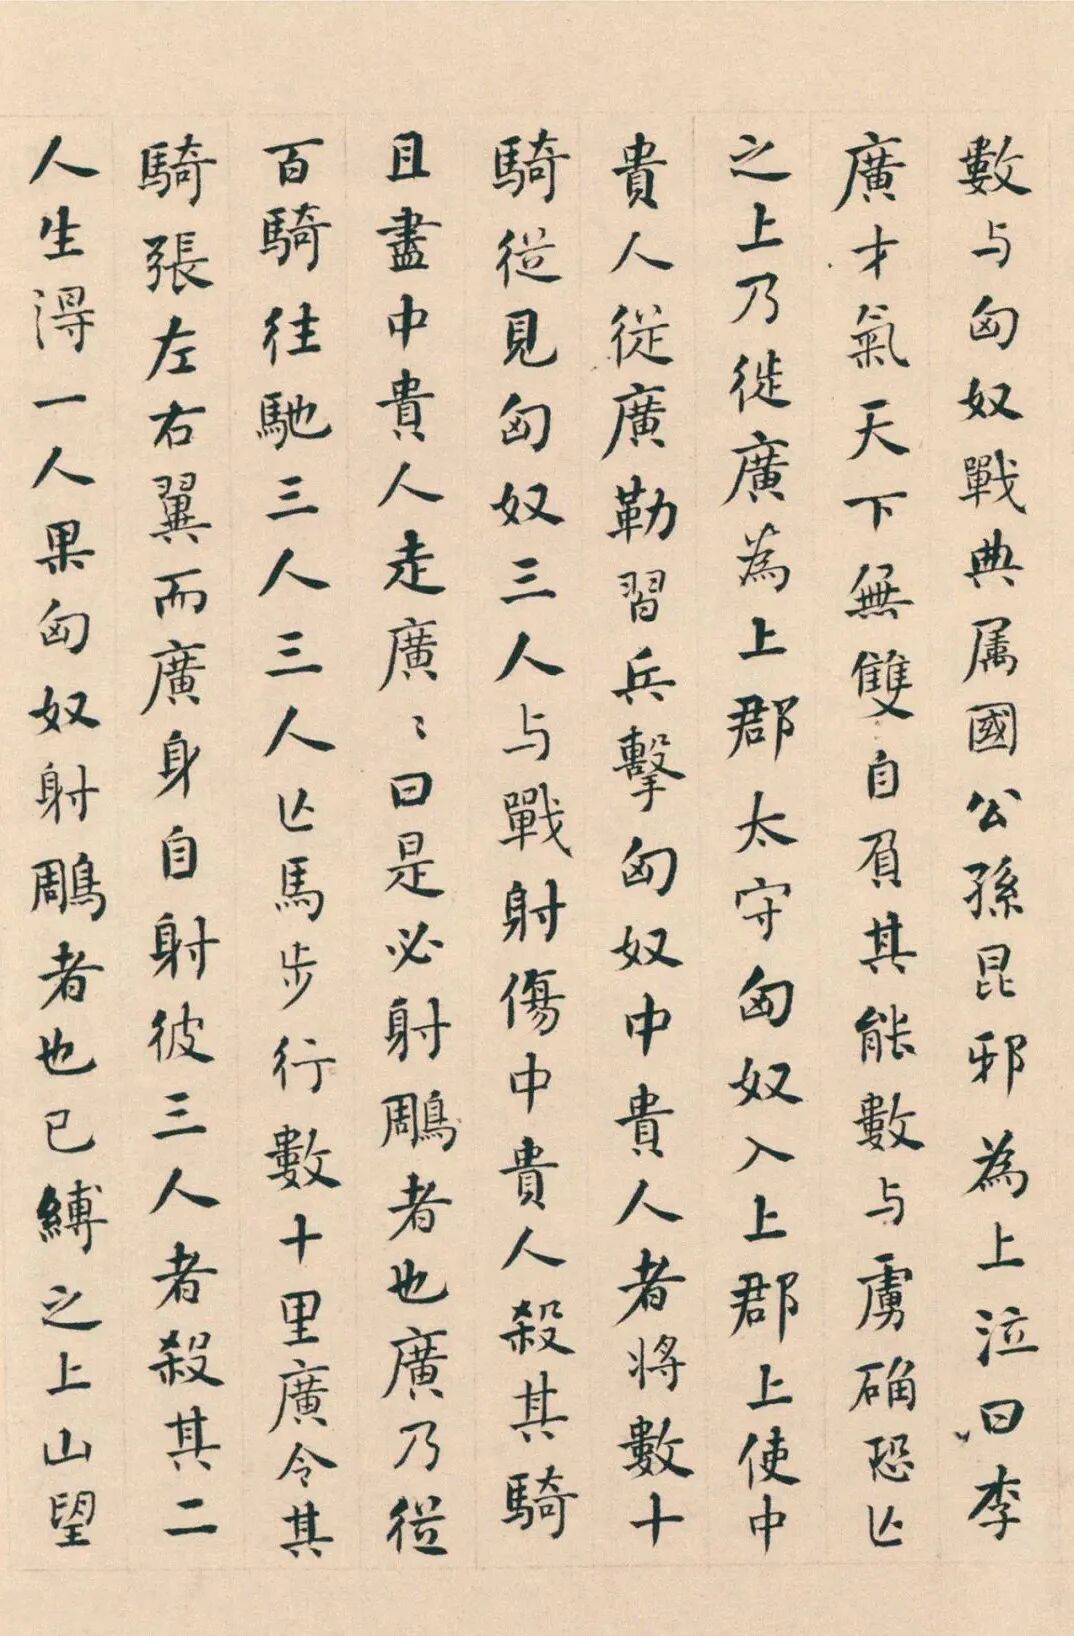 數与匈奴戰典属國公孫昆邪為上泣曰李
廣才氣天下無雙自負其能數与虜确恐亡
之上乃徙廣為上郡太守匈奴入上郡上使中
貴人從廣勒習兵擊匈奴中貴人者將數十
騎從見匈奴三人与戰射傷中貴人殺其騎
且盡中貴人走廣〻曰是必射鵰者也廣乃從
百騎往馳三人三人亡馬步行數十里廣令其
騎張左右翼而廣身自射彼三人者殺其二
人生得一人果匈奴射鵰者也已縛之上山望